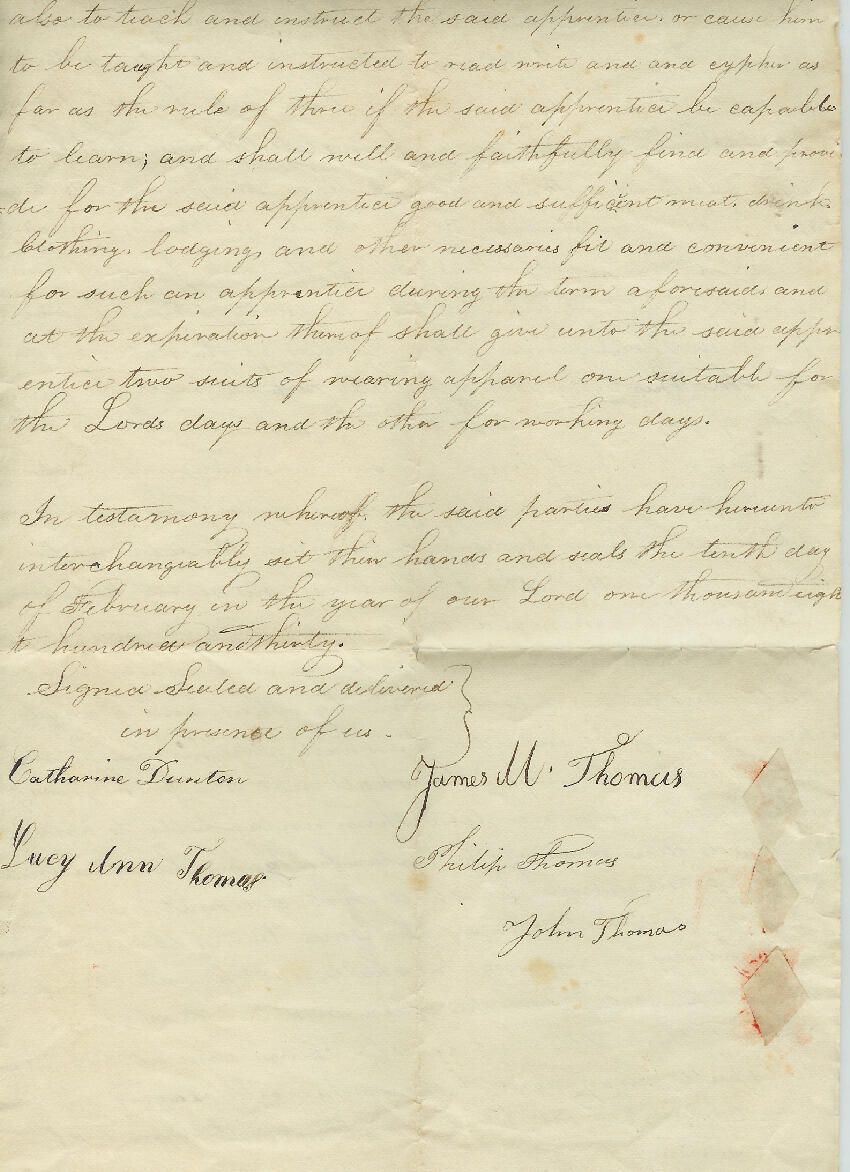 also to teach and instruct the said apprentice. or cause him
to be taught and instructed to read write and and cypher as
far as the rule of three if the said apprentice be capable
to learn; and shall well and faithfully find and provi
=de for the said apprentice good and sufficent meat. drink.
Clothing. lodging, and other necessaries fit and convenient
for such an apprentice during the term aforesaid. and
at the expiration thereof shall give unto the said appr
entice two suits of wearing apparel one suitable for
the Lords days and the other for working days.
In testamony whereof. the said parties have hereunto
interchangeably set their hands and seals the tenth day
of February in the year of our Lord one thousand eigh
t hundred and thirty.
Signed Sealed and delivered
in presence of us.
Catharine Dunton
James M. Thomas
Lucy Ann Thomas
Philip Thomas
John Thomas